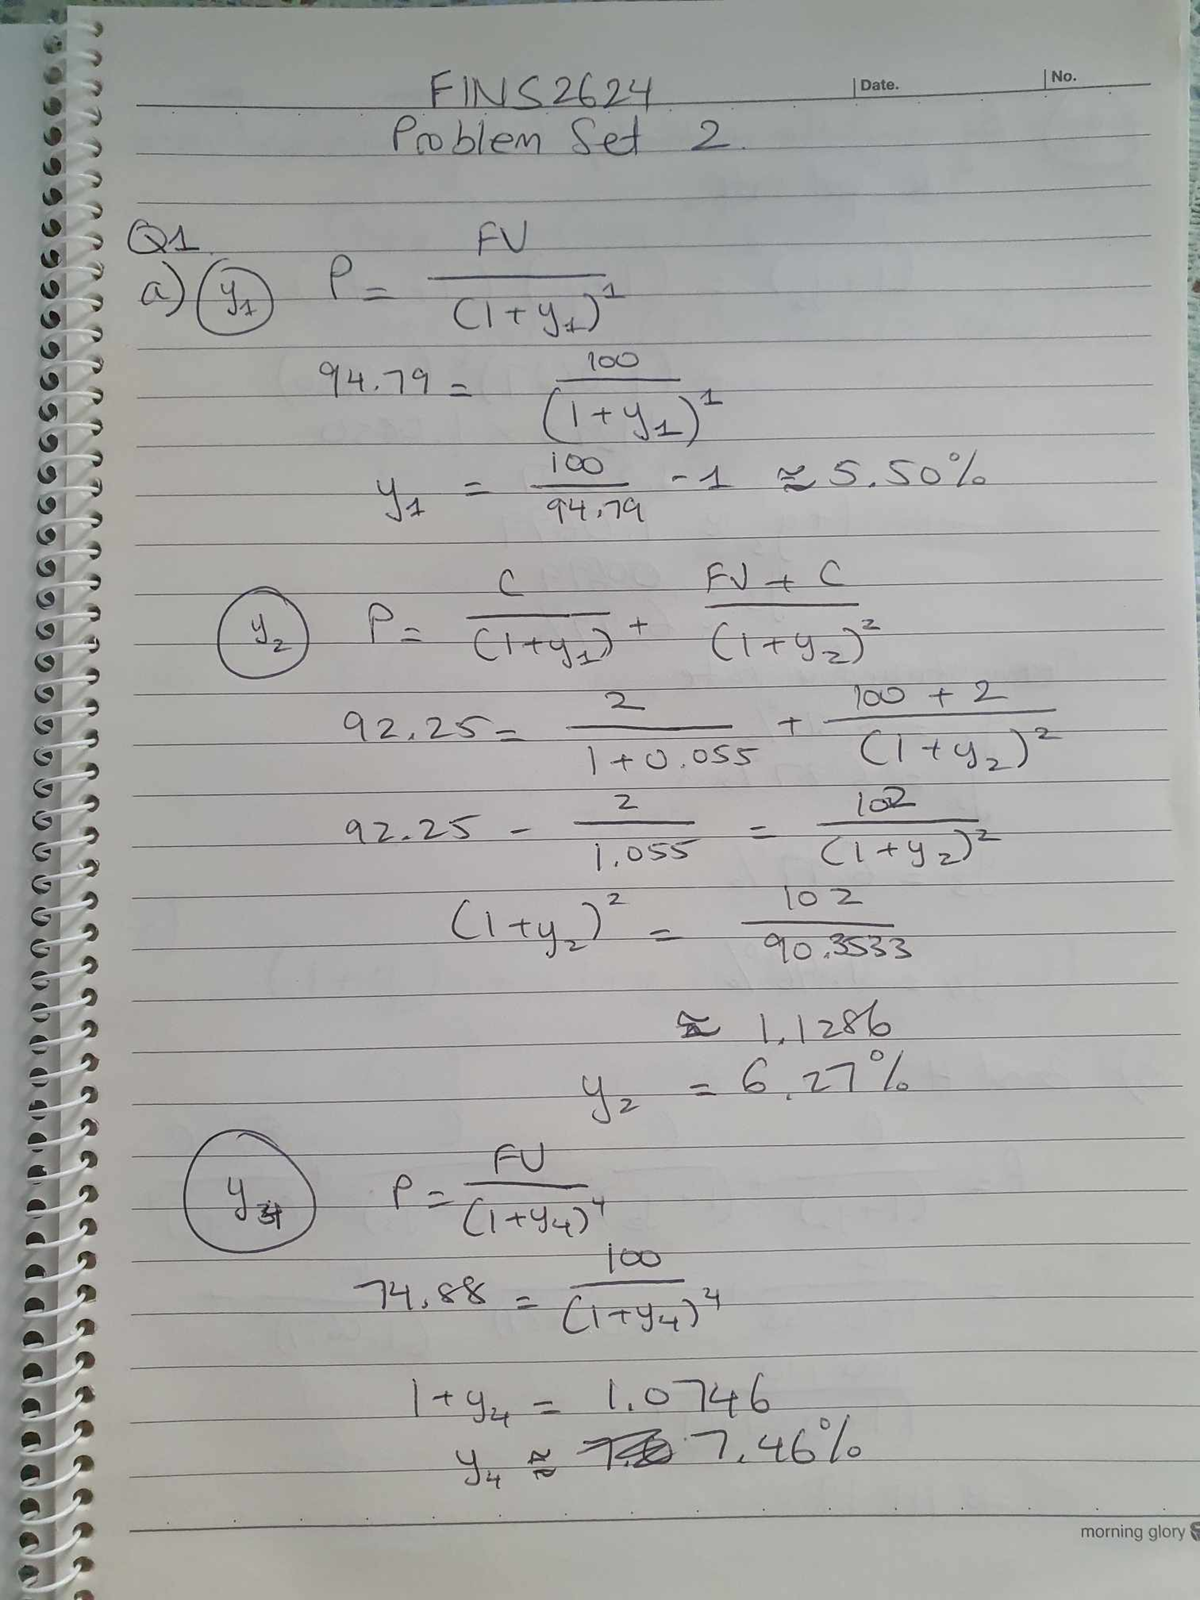 FINS2624
Date.
No.
Problem Set 2.
Q1.
a) y₁ P = FV / (1+y₁)¹
94.79 = 100 / (1+y₁)¹
y₁ = 100 / 94.79 - 1 ≈ 5.50%
y₂ P = C / (1+y₁) + FV + C / (1+y₂)²
92.25 = 2 / 1+0.055 + 100 + 2 / (1+y₂)²
92.25 - 2 / 1.055 = 102 / (1+y₂)²
(1+y₂)² = 102 / 90.3533
≈ 1.1286
y₂ = 6.27%
y₄ P = FV / (1+y₄)⁴
74.88 = 100 / (1+y₄)⁴
1+y₄ = 1.0746
y₄ ≈ 7.46%
morning glory